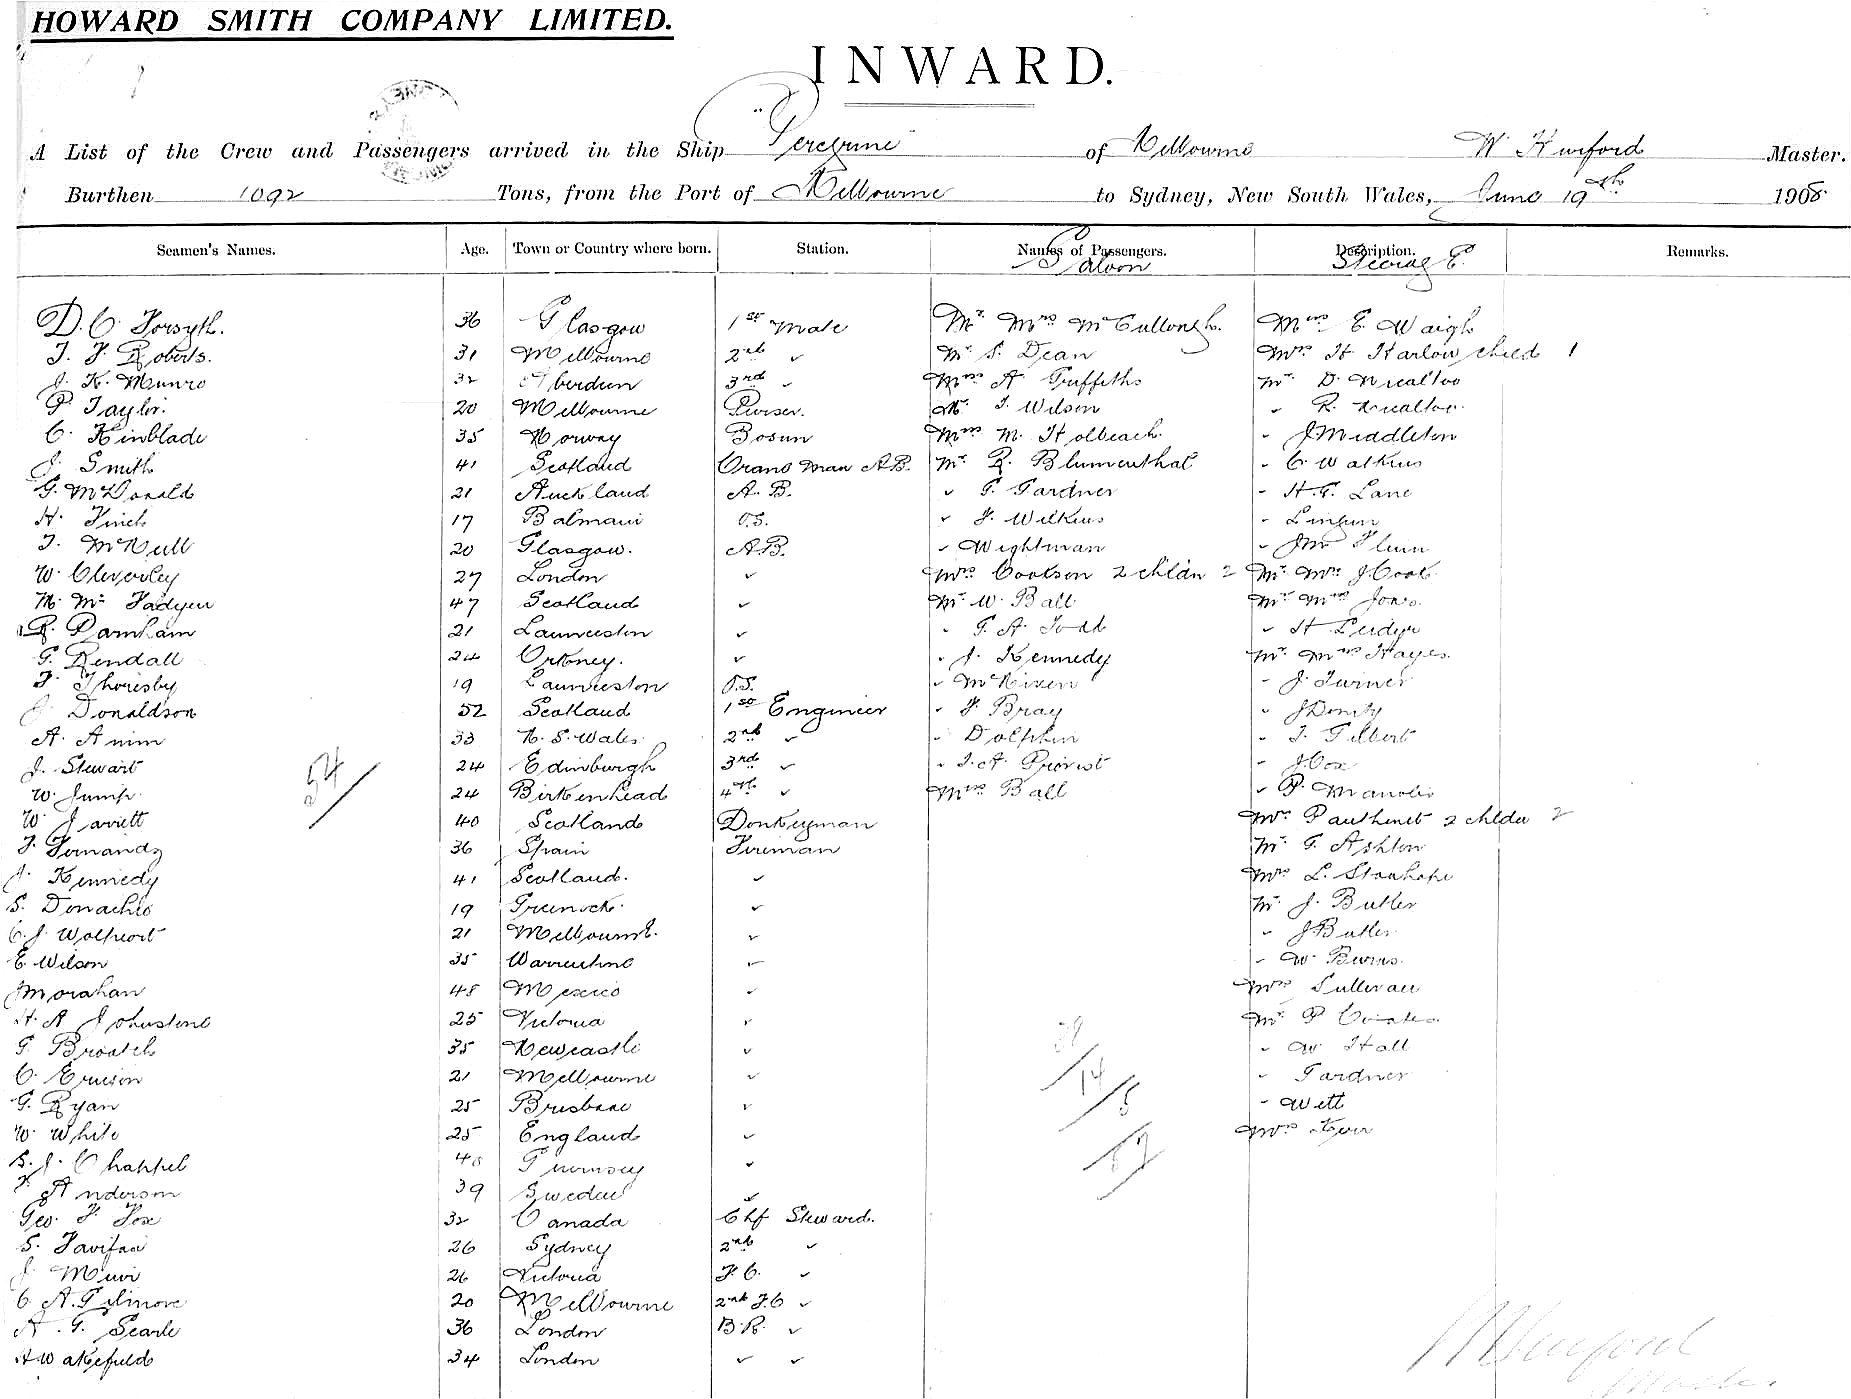 HOWARD SMITH COMPANY LIMITED.
INWARD.
A List of the Crew and Passengers arrived in the Ship "Peregrine" of Melbourne W. Hurford Master.
Burthen 1092 Tons, from the Port of Melbourne to Sydney, New South Wales, June 19th 1908
Seamen's Names. Age. Town or Country where born. Station. Names of Passengers. Description. Remarks.
Saloon Steerage
D. C. Forsyth. 36 Glasgow 1st Mate Mr. Mrs McCullough. Mrs E. Waigh
T. F. Roberts. 31 Melbourne 2nd " Mr S. Dean Mrs H Harlow child 1
J. K. Munro 32 Aberdeen 3rd " Mrs A Griffiths Mr D.
P. Taylor. 20 Melbourne Purser. Mr. J. Wilson " R.
C. Kinblade 35 Norway Bosun Mrs M. Holbeach. " J Middleton
J. Smith 41 Scotland Crane man AB. Mr R. Blumenthal " C Watkins
G. McDonald 21 Auckland A.B. " G. Gardner " H.G. Lane
H. Finch 17 Balmain O.S. " J. Wilkins "
T. McNeill 20 Glasgow. A.B. " Wightman "
W. Cleverley 27 London " Mrs Cookson 2 chldn 2 Mr. Mrs J Cook.
M. Mc Fadyen 47 Scotland " Mr W. Ball Mr Mrs Jones.
R. Damham 21 Launceston " " G. A. Todd " H
G. Rendall 24 Orkney. " " J. Kennedy Mr. Mrs Hayes.
F. Thoresby 19 Launceston O.S. " McNiven " J. Turner
J. Donaldson 52 Scotland 1st Engineer " J. Bray "
A. Anim 33 N. S. Wales. 2nd " " Dolphin " T. Gilbert
J. Stewart 24 Edinburgh 3rd " " J. A. Provist " J Cox
W. Jump. 24 Birkenhead 4th " Mrs Ball " P. Manolis
W. Jarrett 40 Scotland Donkeyman Mrs 2 chldn 2
F. Fernandz 36 Spain Fireman Mr. G Ashton
J. Kennedy 41 Scotland. " Mrs L. Stanhope
S. Donachie 19 Greenock. " Mr J. Butler
C. J. 21 Melbourne. " " J Butler
E. Wilson 35 Warrentine " " W. Burns.
J Morahan 48 Mexico " Mrs Sullivan
H. A Johnstone 25 Victoria " Mr P
G. Broatch 35 Newcastle " " W Hall
C. Ericson 21 Melbourne " " Gardner
G. Ryan 25 Brisbane " " Wett
W. White 25 England " Mrs Kerr
S. J. Chappel 48 Guernsey "
Anderson 39 Sweden "
Geo. F. Fox 32 Canada Chf Steward.
S. Favifax 26 Sydney 2nd "
J. Muir 26 Victoria F.C. "
C. A. Gilmore 20 Melbourne 2nd F.C "
A. G. Searle 36 London B.R. "
A Wakefield 34 London " "
54
14
5
57
W Hurford
Master